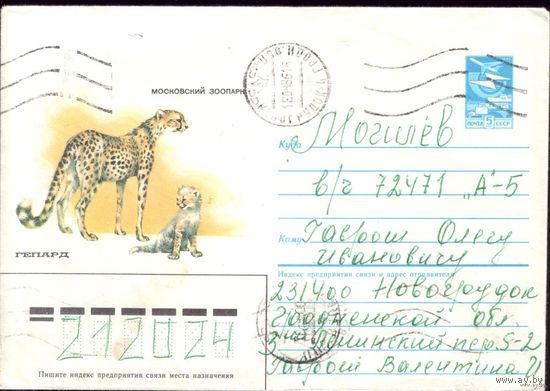 МОСКОВСКИЙ ЗООПАРК
ПОЧТА 5 СССР
Куда Могилёв
в/ч 72471 „А"-5
Кому Гаврош Олегу
Ивановичу
Индекс предприятия связи и адрес отправителя
231400 Новогрудок
Гродненской обл.
3ий Ленинский пер. 5-2
Гаврош Валентина И
ГЕПАРД
212024
Пишите индекс предприятия связи места назначения
www.av.by